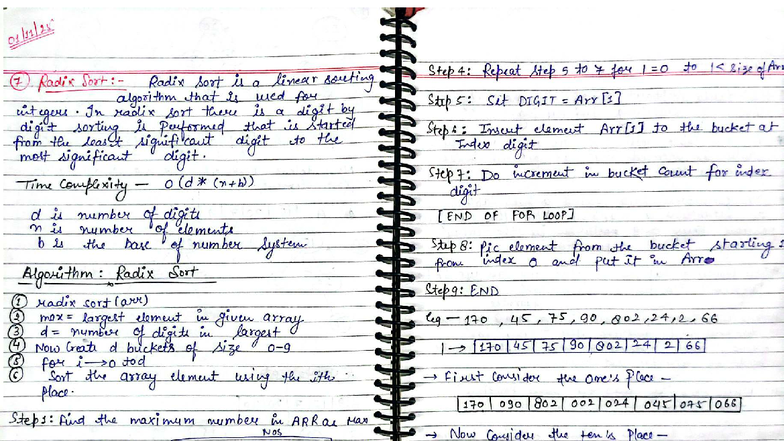 01/11/25
⑦ Radix Sort :- Radix sort is a linear sorting
algorithm that is used for
integers. In radix sort there is a digit by
digit sorting is performed that is started
from the least significant digit to the
most significant digit.
Time Complexity — O(d * (n+b))
d is number of digits
n is number of elements
b is the base of number system
Algorithm : Radix Sort
① radix sort (arr)
② max = largest element in given array
③ d = number of digits in largest
④ Now Create d buckets of size 0-9
⑤ for i → 0 to d
⑥ Sort the array element using the ith
place.
Step 1: Find the maximum number in ARR as
Nos
Step 4: Repeat step 5 to 7 for I=0 to I< size of Arr
Step 5: Set DIGIT = Arr[I]
Step 6: Insert element Arr[I] to the bucket at
Index digit
Step 7: Do increment in bucket count for index
digit
[END OF FOR LOOP]
Step 8: Pic element from the bucket starting
from index 0 and put it in Arr
Step 9: END
eg — 170, 45, 75, 90, 802, 24, 2, 66
I → 170 | 45 | 75 | 90 | 802 | 24 | 2 | 66
→ First Consider the one's place —
170 | 090 | 802 | 002 | 024 | 045 | 075 | 066
→ Now Consider the ten's Place —